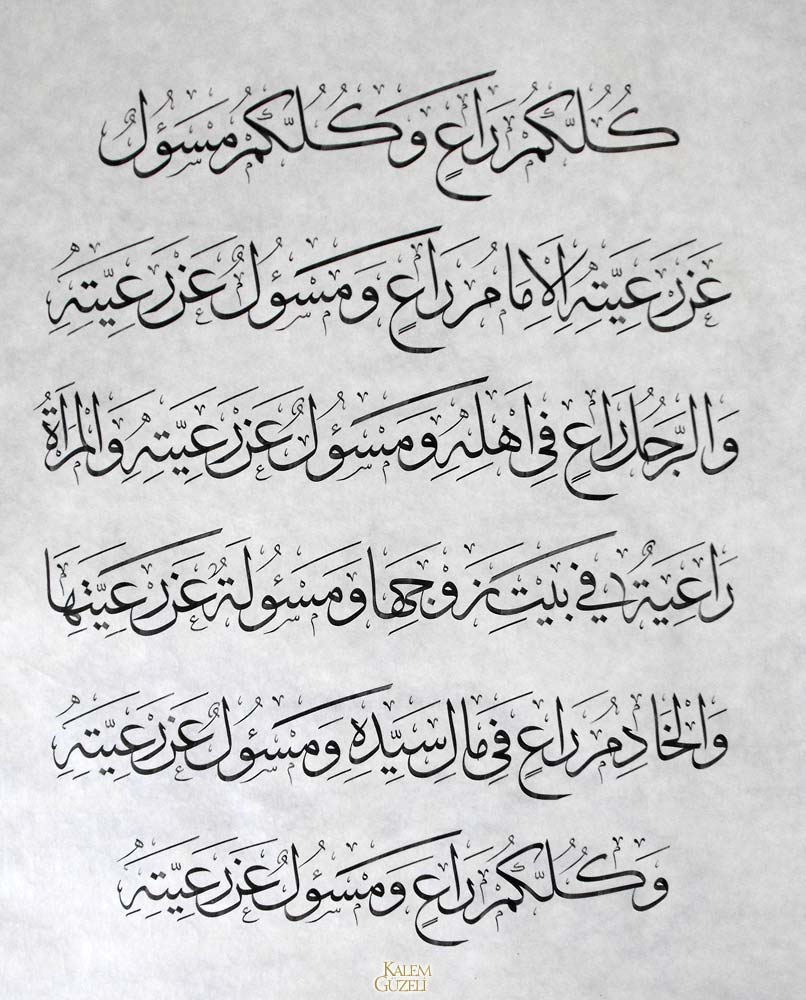 كُلُّكُمْ رَاعٍ وَكُلُّكُمْ مَسَؤُلٌ
عَنْ رَعِيَّتِهِ اَلْاِمَامُ رَاعٍ وَمَسْؤُلٌ عَنْ رَعِيَّتِهِ
وَالرَّجُلُ رَاعٍ فِى اَهْلِهِ وَمَسَؤُلٌ عَنْ رَعِيَّتِهِ وَالْمَرْأَةُ
رَاعِيَةٌ فِي بَيْتِ زَوْجِهَا وَمَسْؤُلَةٌ عَنْ رَعِيَّتِهَا
وَالْخَادِمُ رَاعٍ فِى مَالِ سَيِّدِهِ وَمَسْؤُلٌ عَنْ رَعِيَّتِهِ
وَكُلُّكُمْ رَاعٍ وَمَسْؤُلٌ عَنْ رَعِيَّتِهِ
KALEM
GÜZELİ